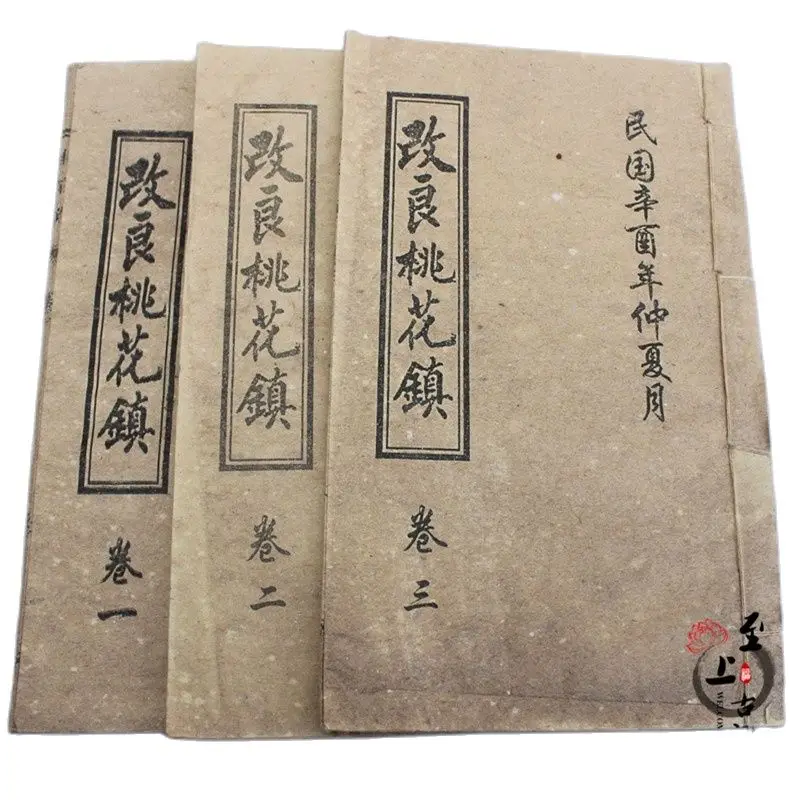 改良桃花鎮
卷一
改良桃花鎮
卷二
改良桃花鎮
卷三
民国辛酉年仲夏月
至
上